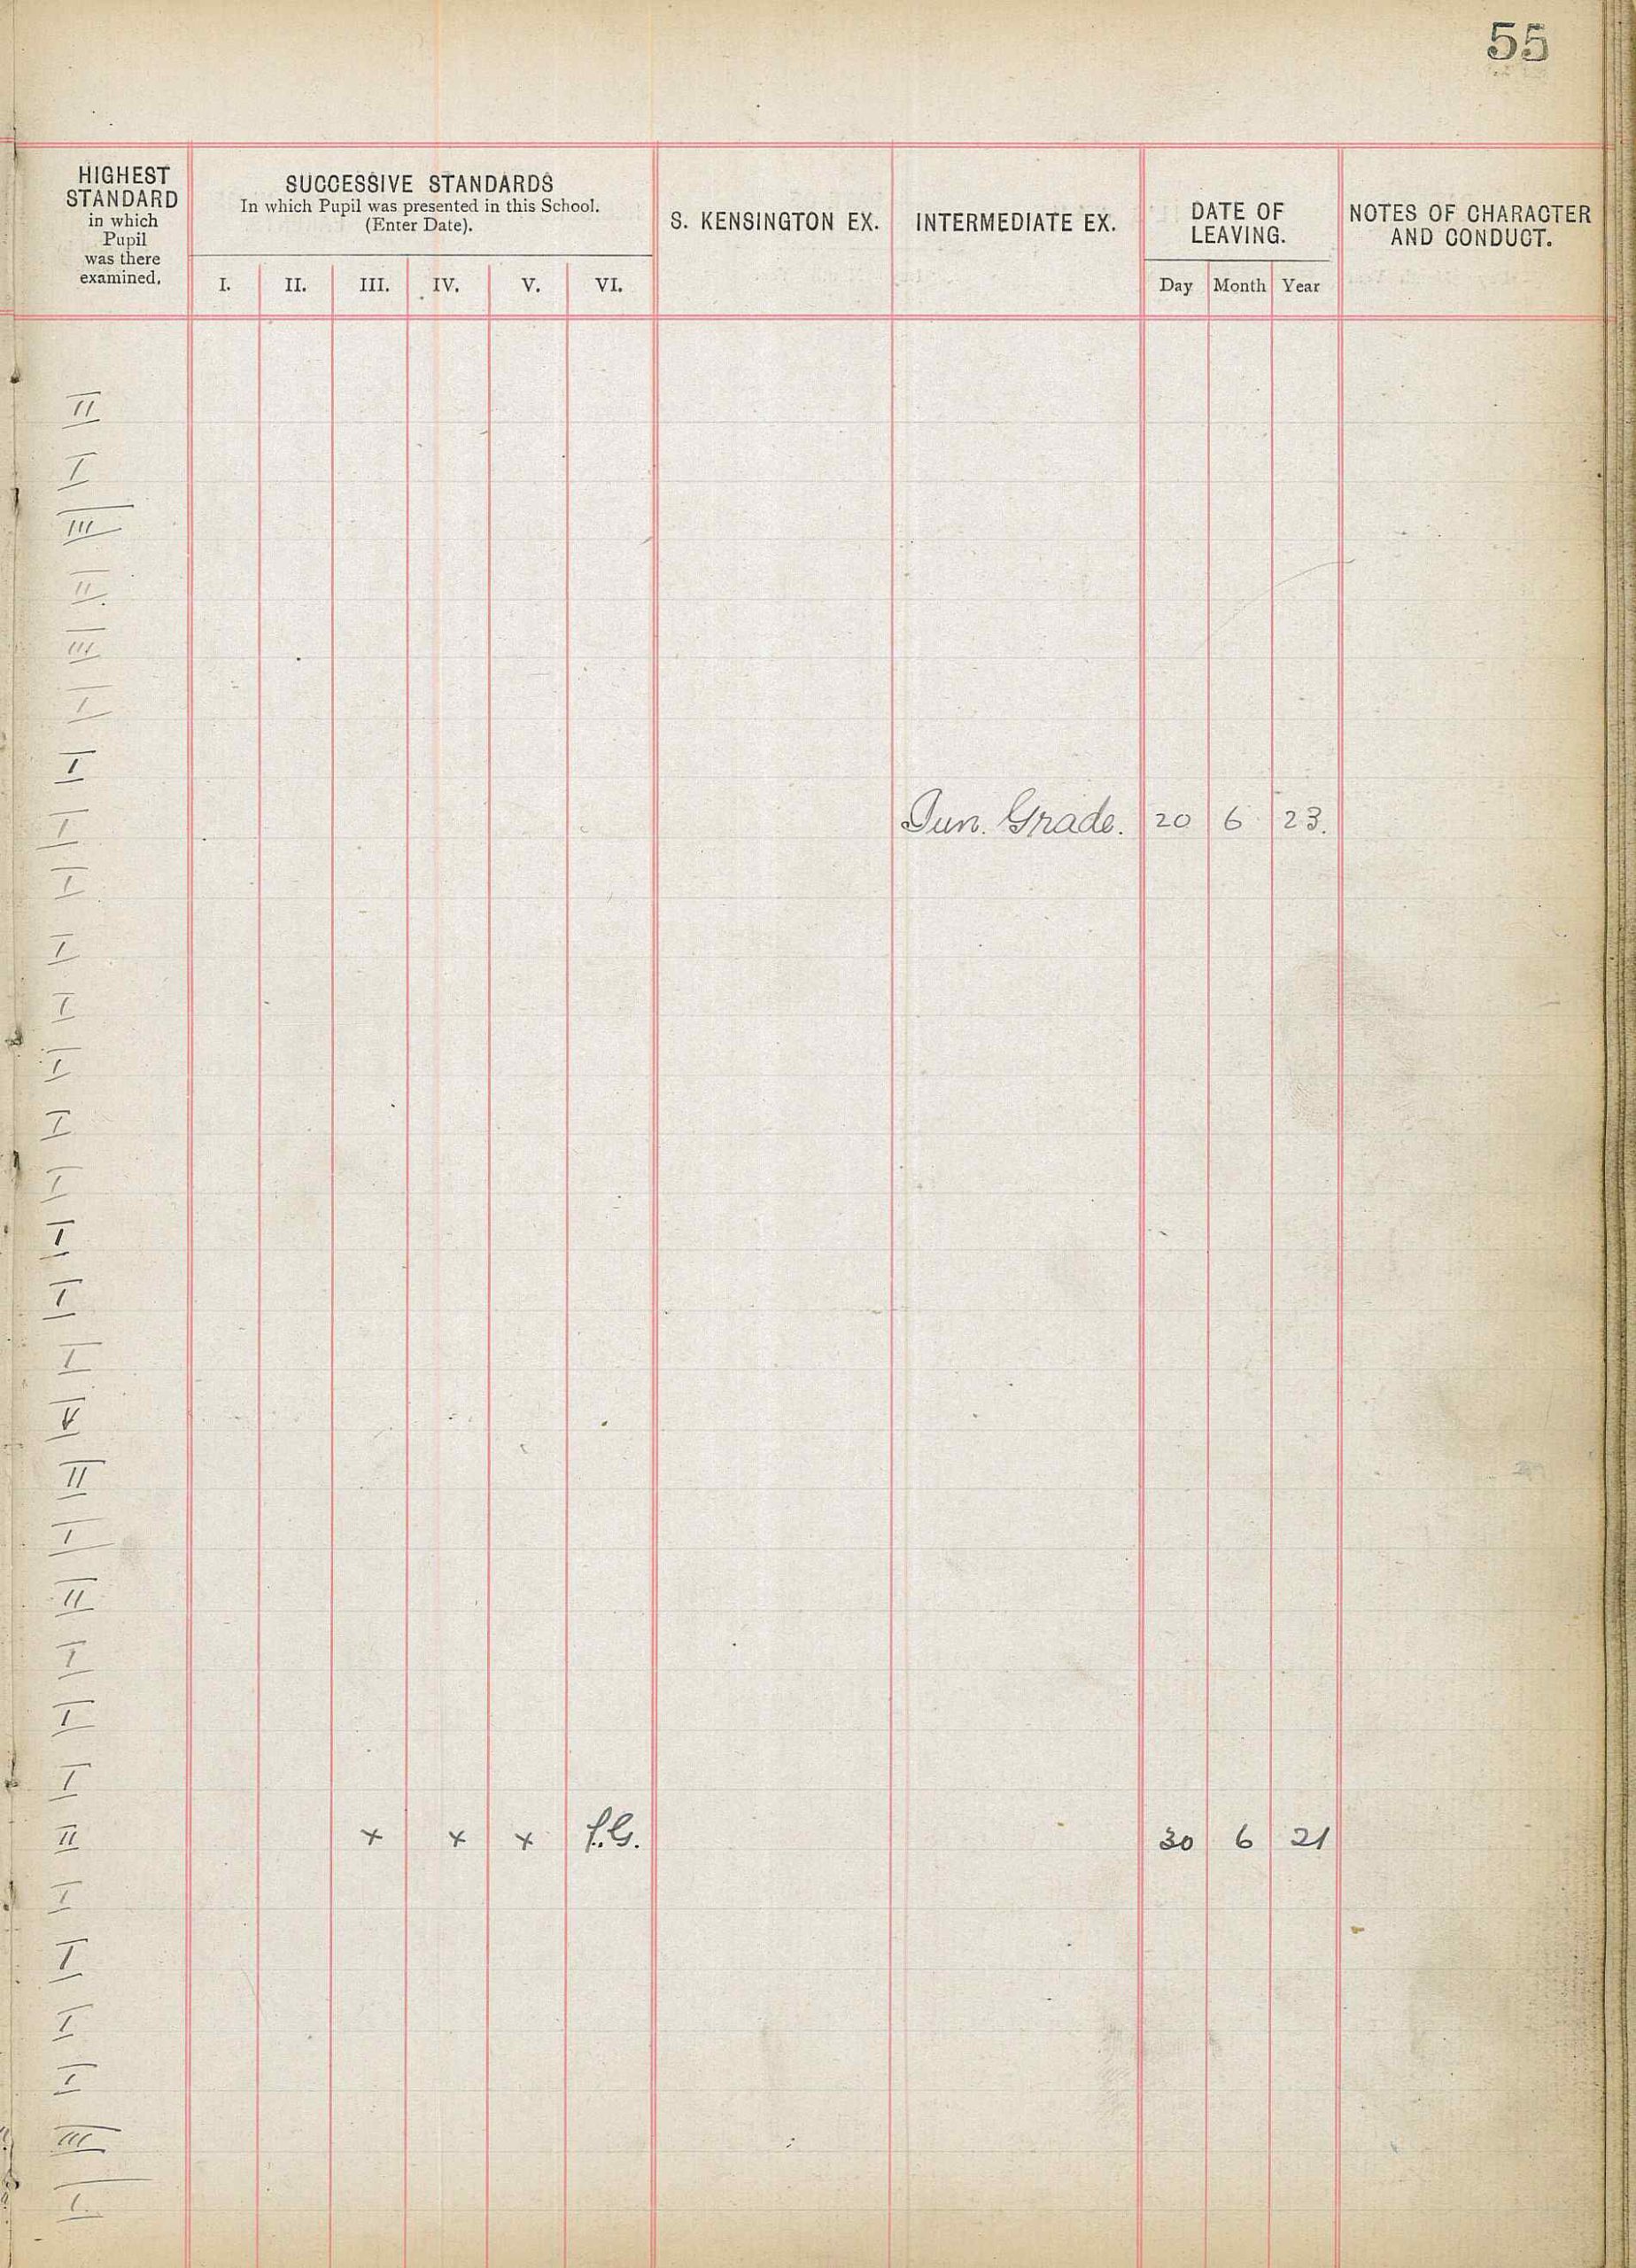 55
HIGHEST STANDARD in which Pupil was there examined.
SUCCESSIVE STANDARDS
In which Pupil was presented in this School.
(Enter Date).
I. II. III. IV. V. VI.
S. KENSINGTON EX.
INTERMEDIATE EX.
DATE OF LEAVING.
Day Month Year
NOTES OF CHARACTER AND CONDUCT.
II
I
III
II.
III
I
I
I Jun. Grade. 20 6 23.
I
I
I
I
I
I
I
I
I
V
II
I
II
I
I
I
II x x x P.G. 30 6 21
I
I
I
I
III
I